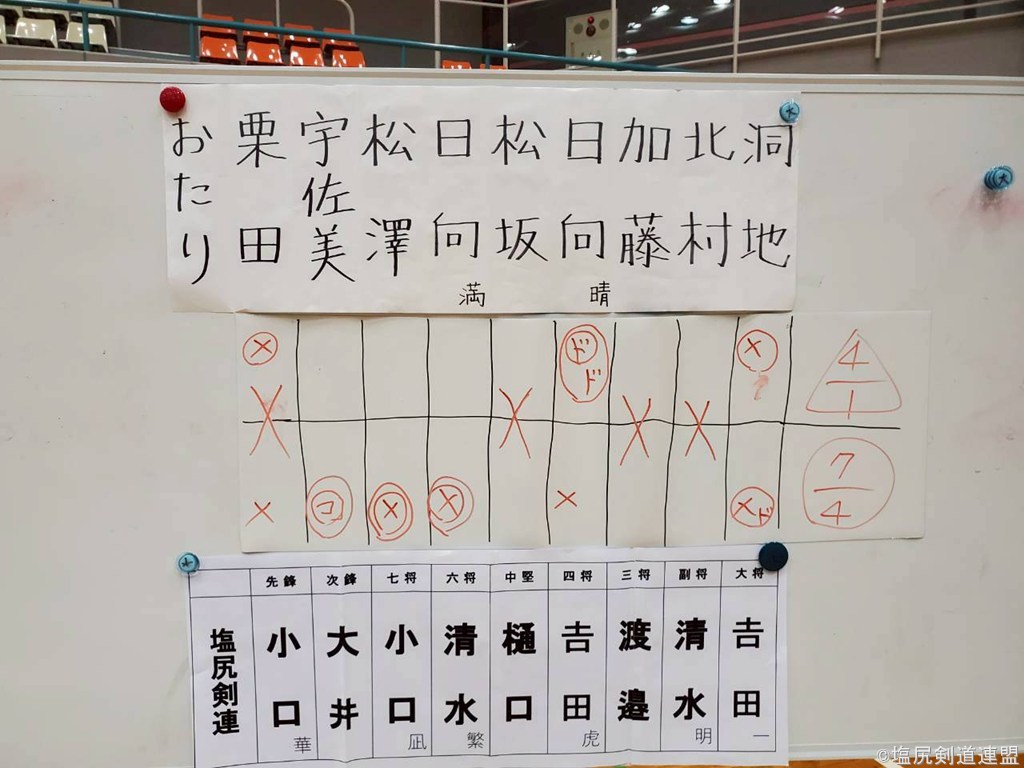 おたり
栗田
宇佐美
松澤
日向 満
松坂
日向 晴
加藤
北村
洞地
メ
ドド
メ
4
1
メ
コ
メ
メ
メ
メド
7
4
先鋒 次鋒 七将 六将 中堅 四将 三将 副将 大将
塩尻剣連
小口 華
大井
小口 凪
清水 繁
樋口
𠮷田 虎
渡邉
清水 明
𠮷田 一
©塩尻剣道連盟